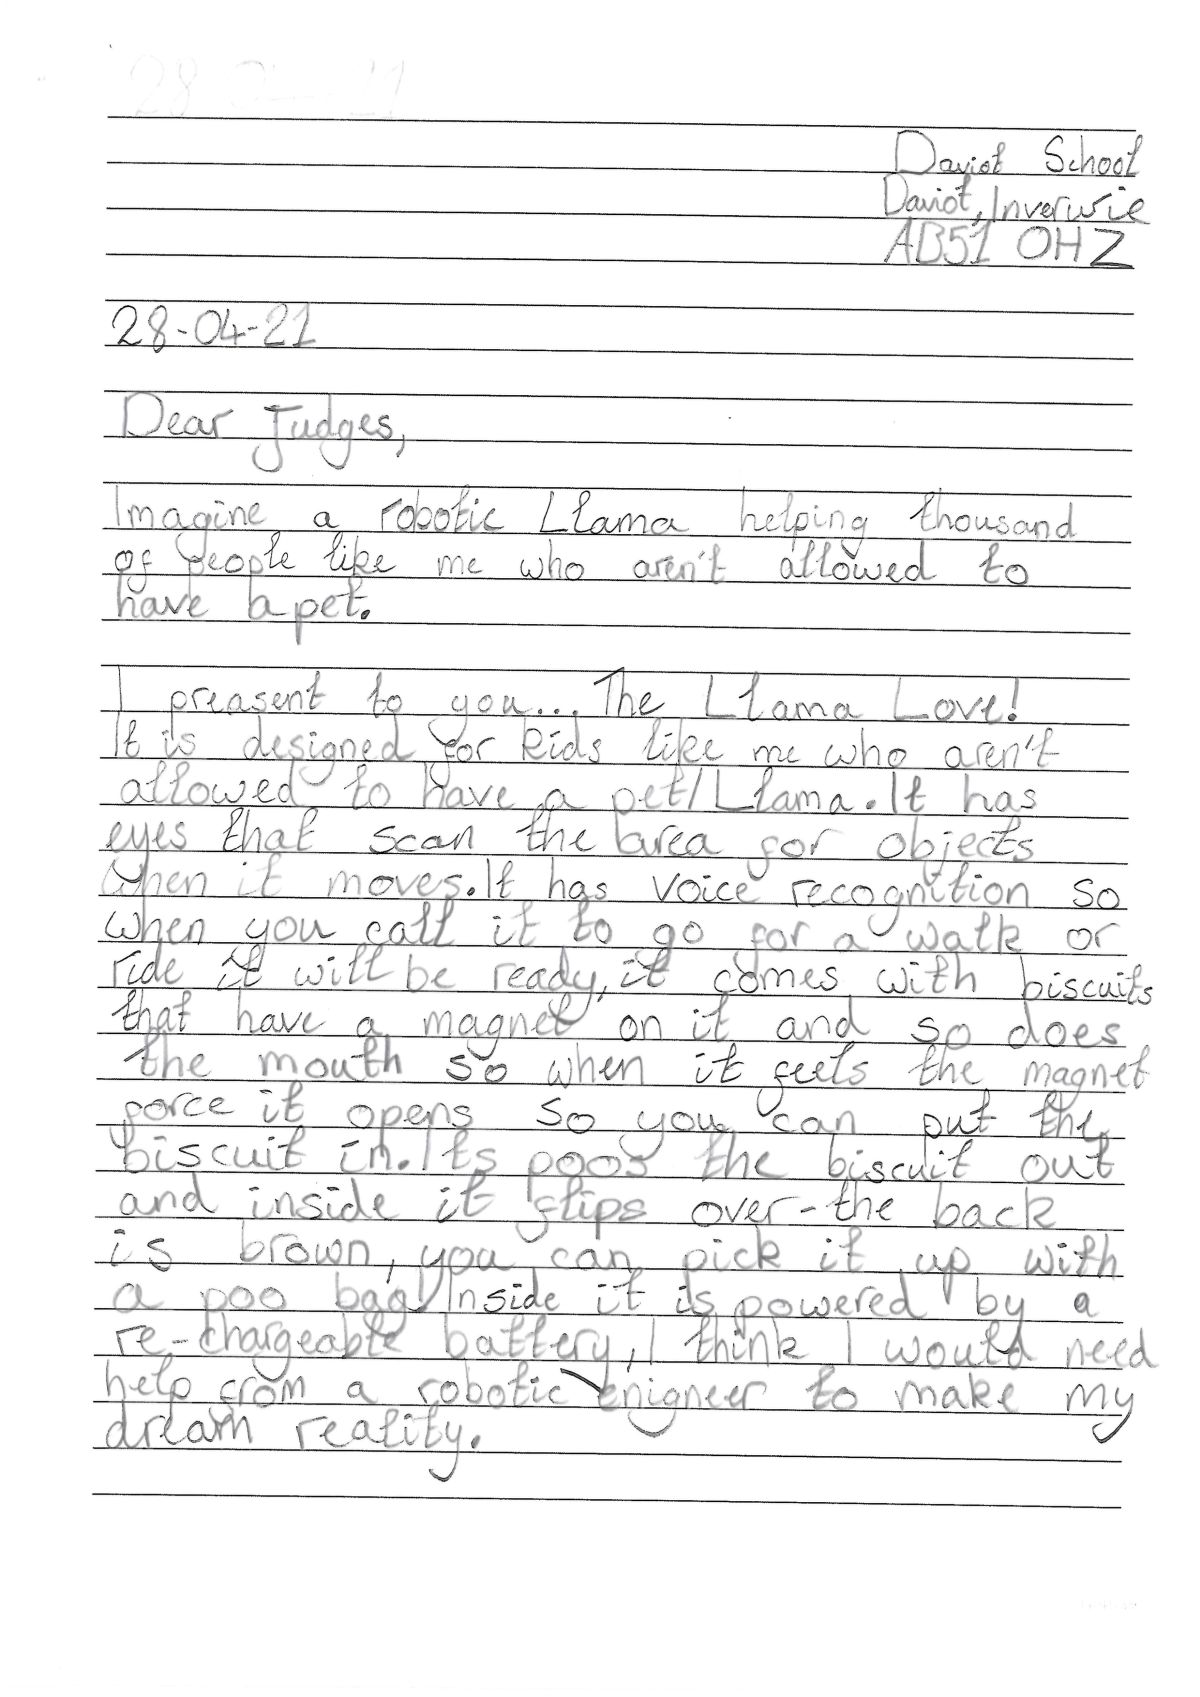 Daviot School
Daviot, Inverurie
AB51 0HZ
28-04-21
Dear Judges,
Imagine a robotic Llama helping thousand
of people like me who aren't allowed to
have a pet.
I preasent to you... The Llama Love!
It is designed for kids like me who aren't
allowed to have a pet/Llama. It has
eyes that scan the area for objects
when it moves. It has voice recognition so
when you call it to go for a walk or
ride it will be ready, it comes with biscuits
that have a magnet on it and so does
the mouth so when it feels the magnet
force it opens so you can put the
biscuit in. Its poos the biscuit out
and inside it flips over-the back
is brown, you can pick it up with
a poo bag! Inside it is powered by a
re-chargeable battery, I think I would need
help from a robotic enigneer to make my
dream reality.